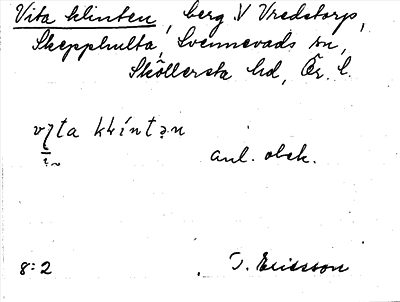 Vita klinten, berg V Vredstorp,
Skepphulta, Svennevads sn,
Sköllersta hd, Ör. l.
vita klintən
anl. obek.
8:2
T. Ericsson